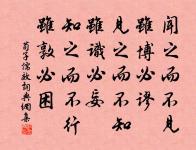 聞之而不見
雖博必謬
見之而不知
雖識必妄
知之而不行
雖敦必困
荀子儒效詞典網集